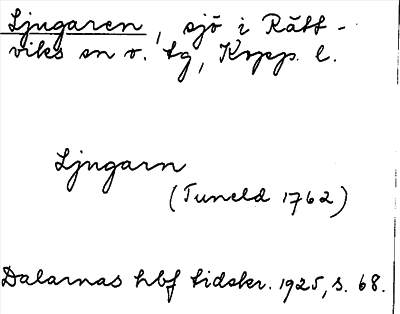 Ljugaren, sjö i Rätt-
viks sn o. tg, Kopp. l.
Ljugarn
(Tuneld 1762)
Dalarnas hbf tidskr. 1925, s. 68.